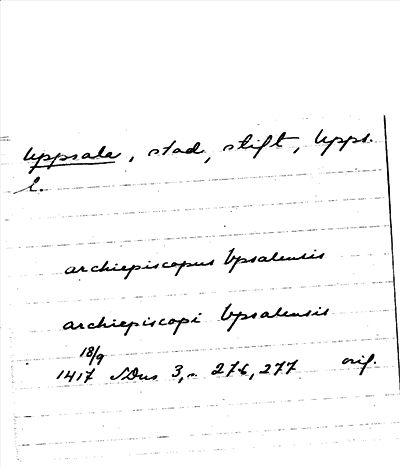 Uppsala, stad, stift, Upps.
l.
archiepiscopus Vpsalensis
archiepiscopi Vpsalensis
18/9
1417 SDns 3, 276, 277 orig.